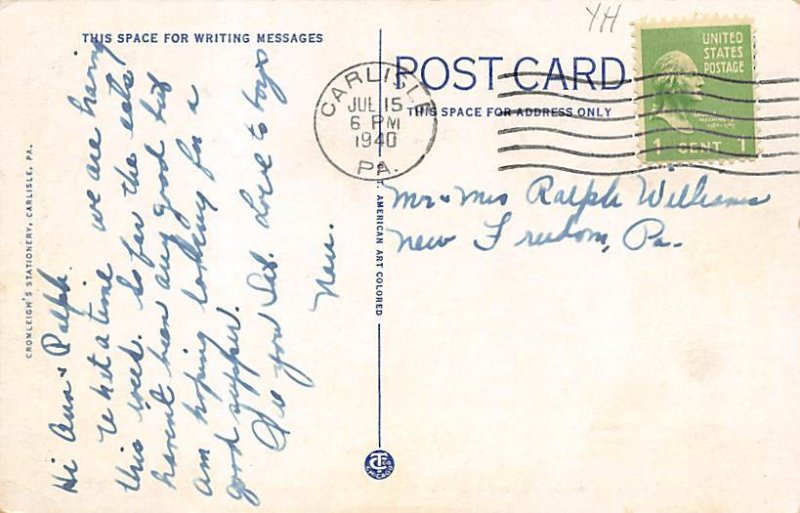 THIS SPACE FOR WRITING MESSAGES
Hi Ann & Ralph.
What a time we are having
this week. So far the eats
havent been any good but
am hoping looking for a
good supper.
See you Sat. Love to boys
CROWLEIGH'S STATIONERY, CARLISLE, PA.
C. T. AMERICAN ART COLORED
YH
POST CARD
THIS SPACE FOR ADDRESS ONLY
CARLISLE
JUL 15
6 PM
1940
PA.
UNITED
STATES
POSTAGE
1 CENT 1
Mr & Mrs Ralph Williams
New Freedom, Pa.